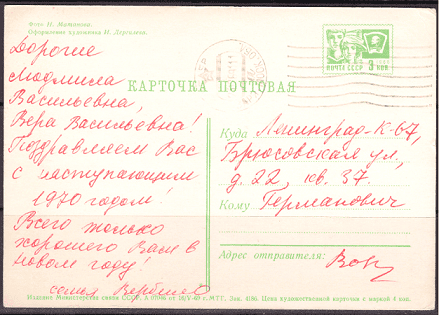 Фото Н. Матанова.
Оформление художника П. Дергилева.
Дорогие
Людмила
Васильевна,
Вера Васильевна!
Поздравляем Вас
с наступающим
1970 годом!
Всего только
хорошего Вам в
новом году!
семья
ПОЧТА СССР 3 КОП.
КАРТОЧКА ПОЧТОВАЯ
Куда Ленинград-К-67,
Брюсовская ул.,
д. 22, кв. 37.
Кому Германович
Адрес отправителя:
Издание Министерства связи СССР. А 07046 от 16/V-69 г. МТГ. Зак. 4186. Цена художественной карточки с маркой 4 коп.